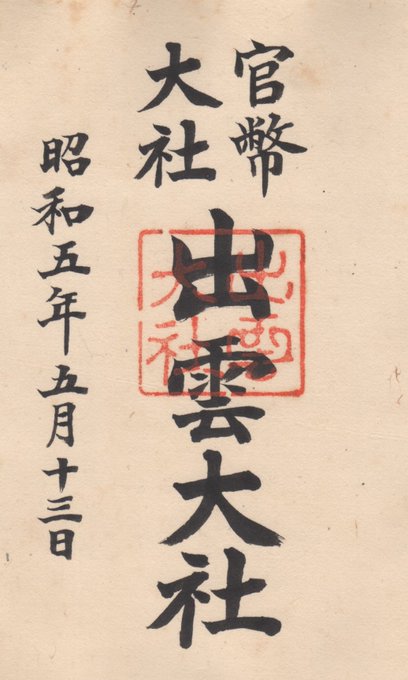 官幣
大社
出雲大社
昭和五年五月十三日
出雲
大社